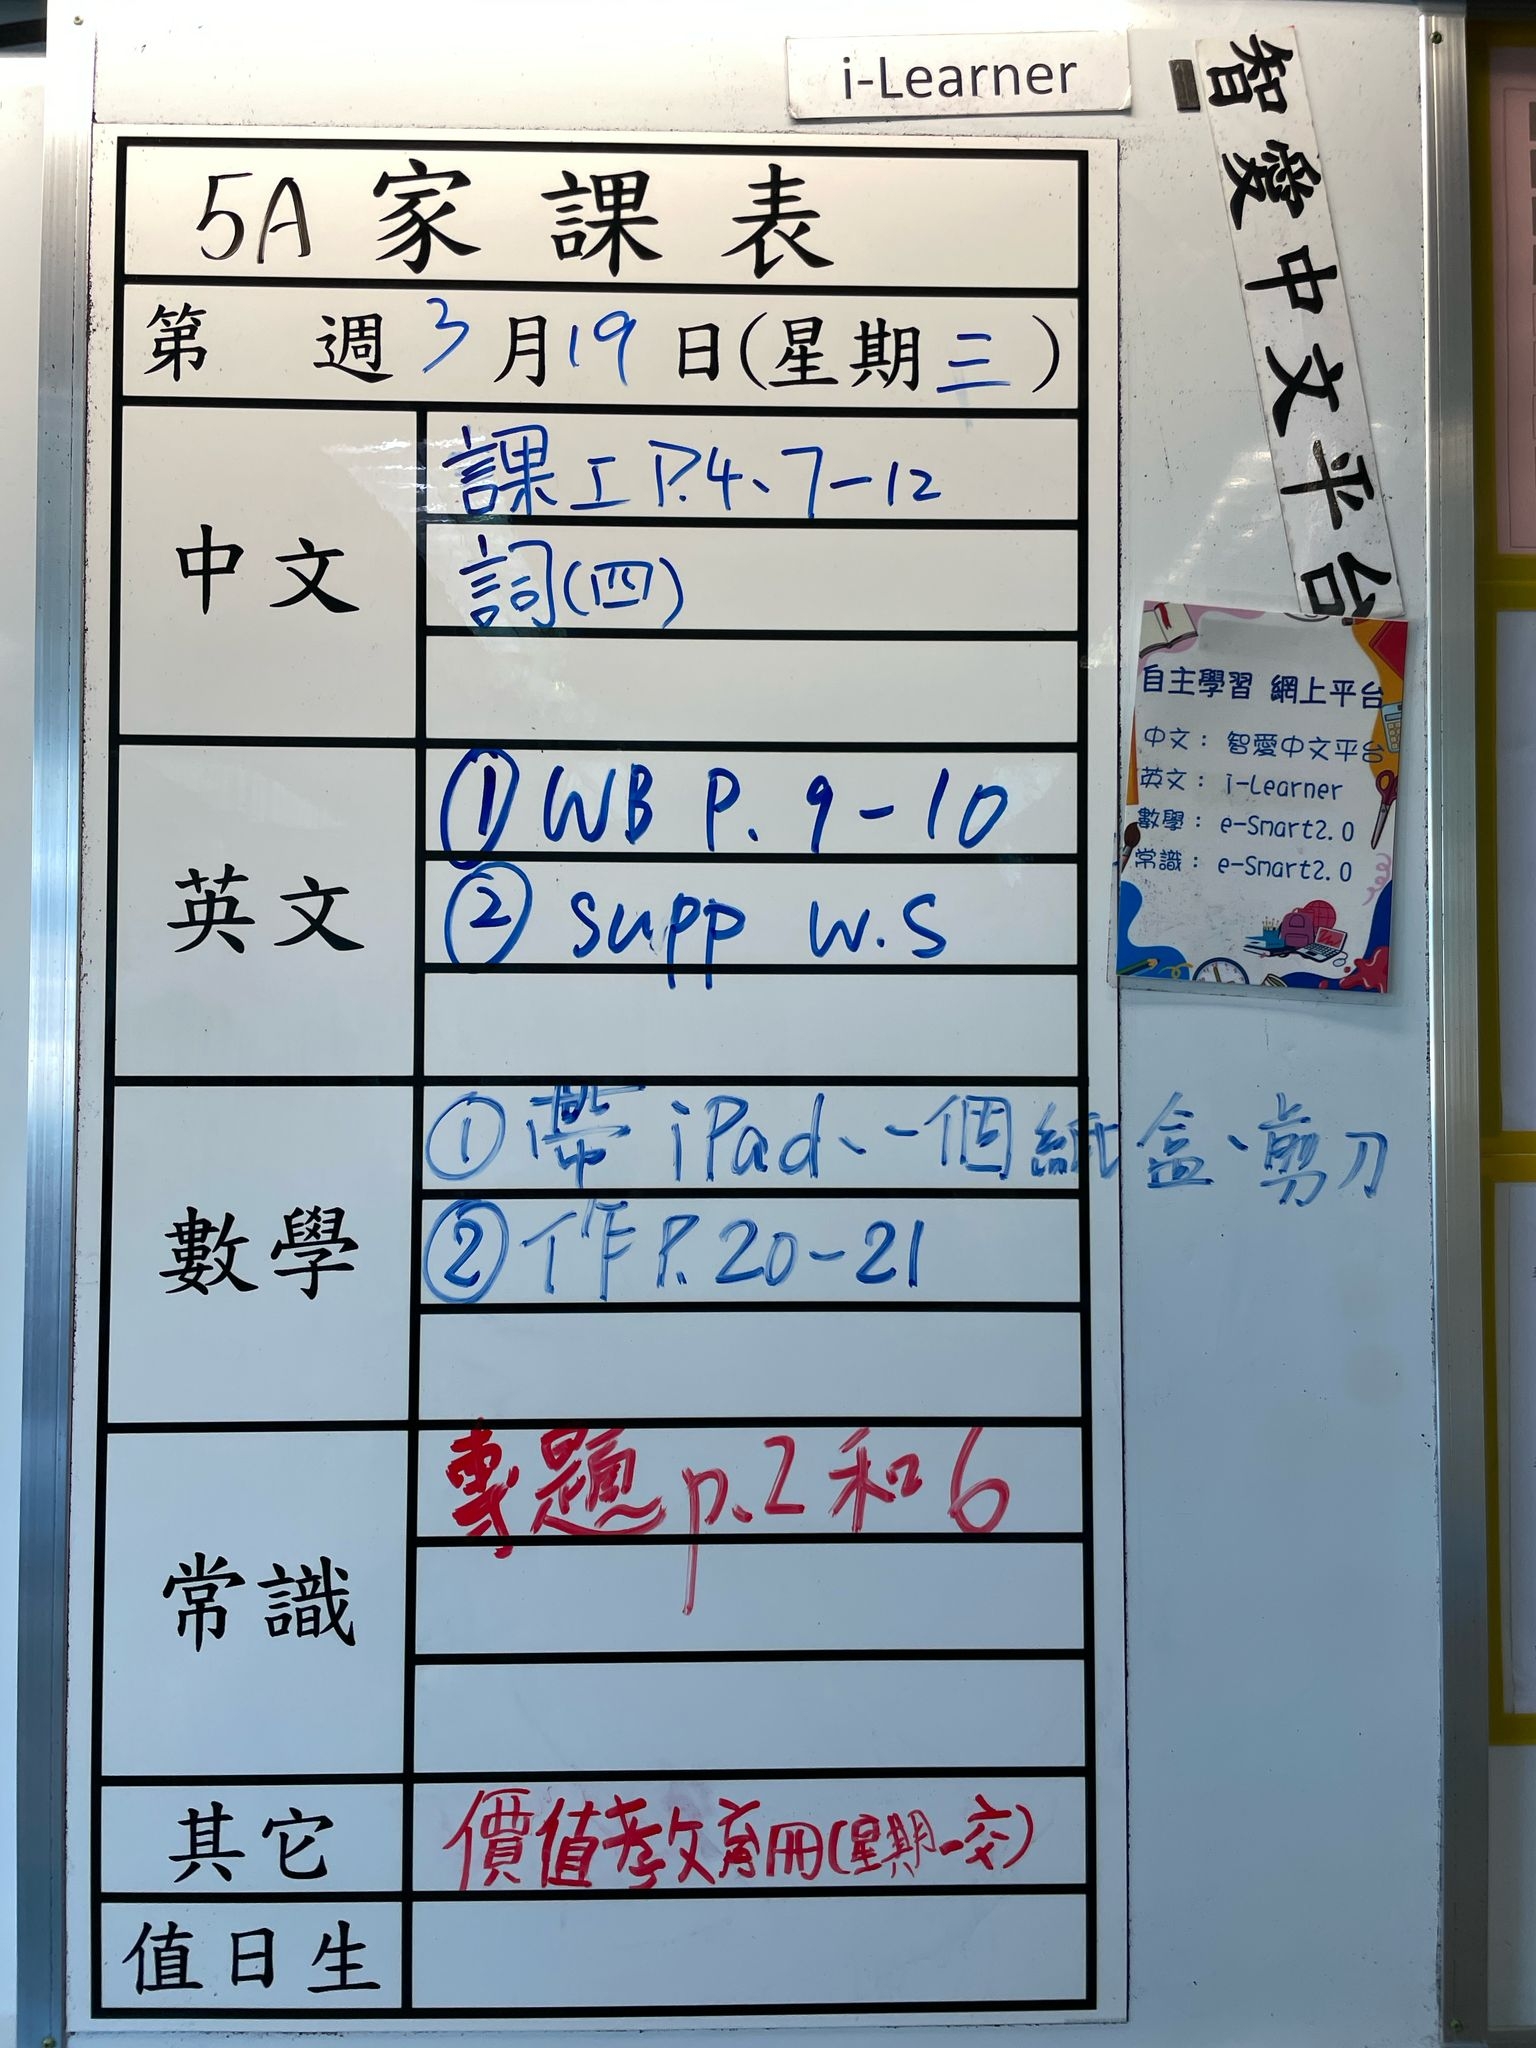 i-Learner
智愛中文平台
5A 家課表
第 週 3月19日(星期三)
中文
課工 P.4、7-12
詞(四)
英文
① WB P. 9-10
② supp W.S
數學
① 帶 iPad、一個紙盒、剪刀
② 作 P. 20-21
常識
專題 p.2 和 6
其它
價值教育冊(星期一交)
值日生
自主學習 網上平台
中文: 智愛中文平台
英文: i-Learner
數學: e-Smart2.0
常識: e-Smart2.0